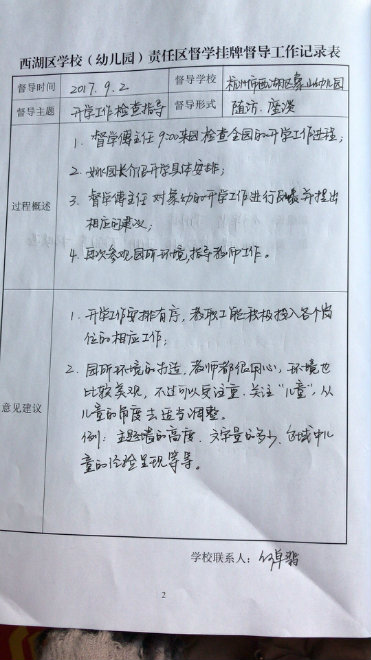 西湖区学校（幼儿园）责任区督学挂牌督导工作记录表
督导时间 2017.9.2 督导学校 杭州市西湖区象山幼儿园
督导主题 开学工作检查指导 督导形式 随访、座谈
过程概述
1. 督学傅主任9:00来园检查全园的开学工作进程；
2. 姚园长介绍开学具体安排；
3. 督学傅主任对象幼的开学工作进行反馈并提出
相应的建议；
4. 再次参观园所环境，指导教师工作。
意见建议
1. 开学工作安排有序，教职工能积极投入各个岗
位的相应工作；
2. 园所环境的打造，老师都很用心，环境也
比较美观，不过可以更注重、关注“儿童”，从
儿童的角度去适当调整。
例：主题墙的高度、文字量的多少、区域中儿
童的经验呈现等等。
学校联系人：
2